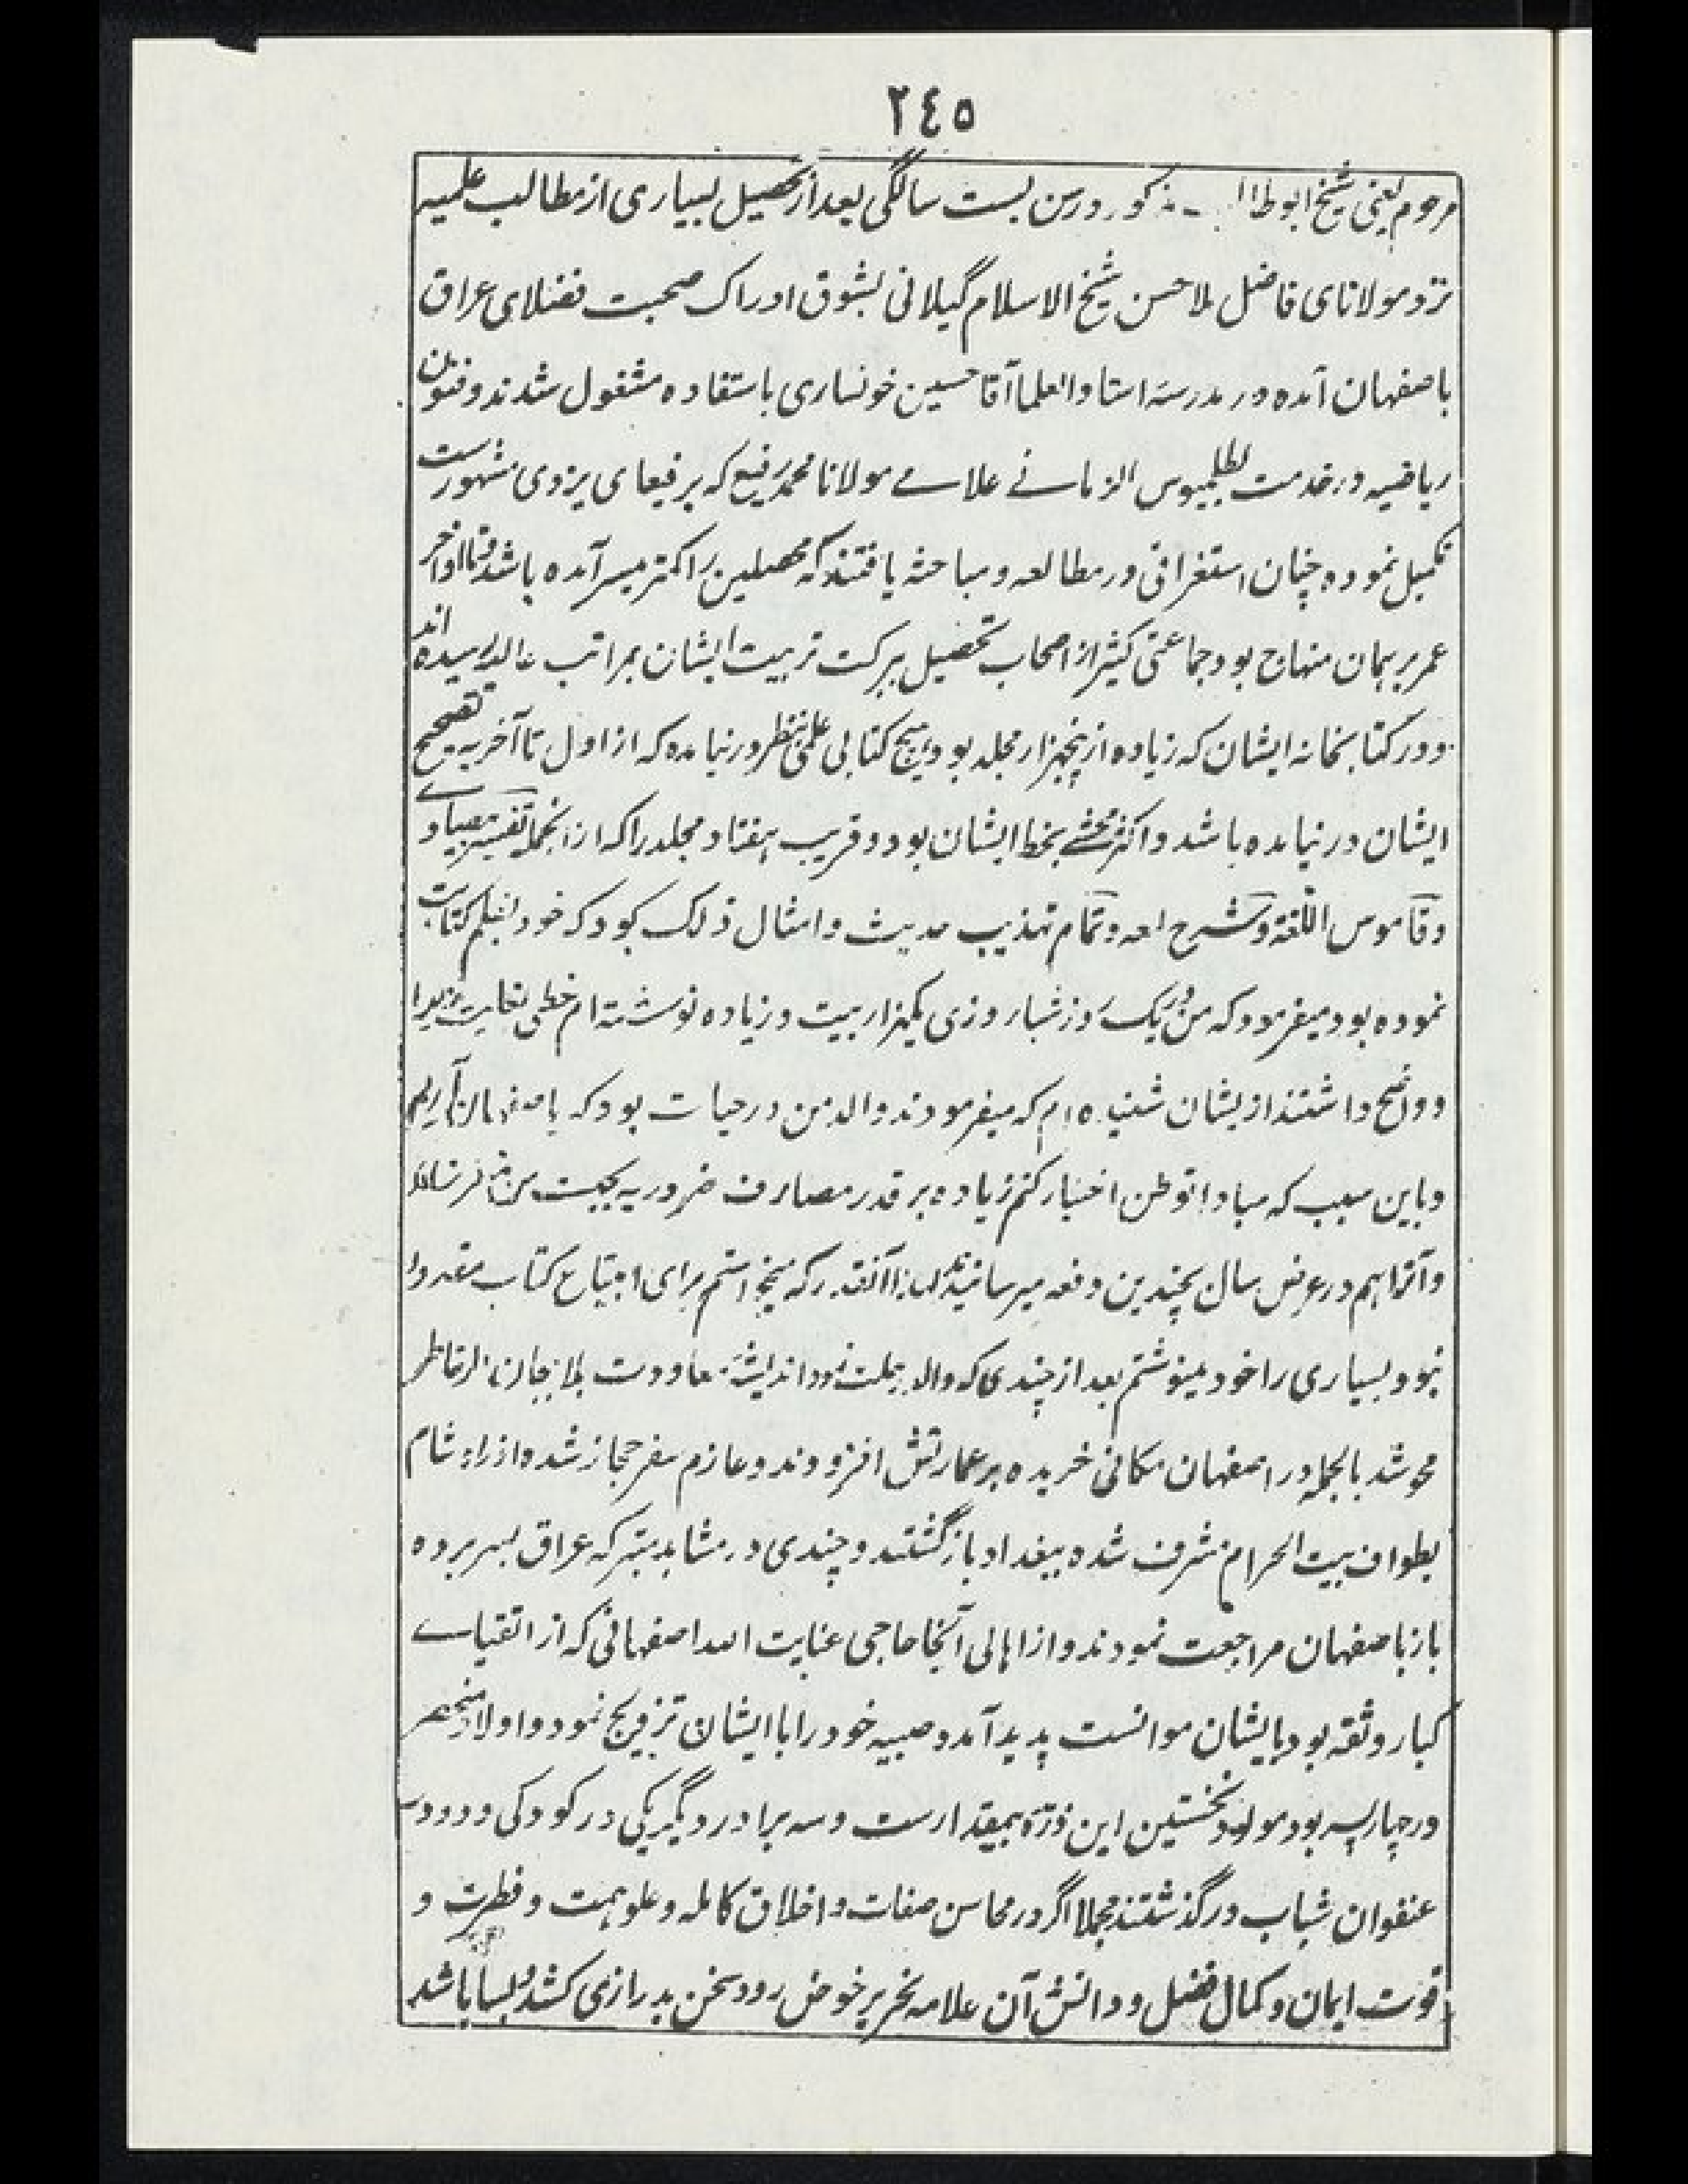 ٢٤٥
مرحوم یعنی شیخ ابوطا مذکور در سن بست سالگی بعد از تحصیل بسیاری از مطالب علمیه
نزد مولانای فاضل ملا حسن شیخ الاسلام گیلانی بشوق ادراک صحبت فضلای عراق
باصفهان آمده در مدرسه استاد العلما آقا حسین خونساری باستفاده مشغول شدند و فنون
ریاضیه در خدمت بطلمیوس الزمانے علامے مولانا محمد رفیع که برفیعای یزدی مشهورست
تکمیل نموده چنان استغراقی در مطالعه و مباحثه یافتند که محصلین را کمتر میسر آمده باشد و تا اواخر
عمر بر همان منهاج بود جماعتی کثیر از اصحاب تحصیل ببرکت تربیت ایشان بمراتب عالیه رسیده اند
و در کتابخانه ایشان که زیاده از پنجهزار مجلد بود هیچ کتابی علمی بنظر در نیامده که از اول تا آخر به تصحیح
ایشان در نیامده باشد و اکثر محشے بخط ایشان بود و قریب هفتاد مجلد را که از انجمله تفسیر بیضاوے
و قاموس اللغة و شرح لمعه و تمام تهذیب حدیث و امثال ذلک بود که خود بقلم کتابت
نموده بود میفرمود که من در یک روز شبار وزی یکهزار بیت و زیاده نوشته ام خطی بغایت
و واضح داشتند از یشان شنیده ام که میفرمودند والد من در حیات بود که باصفهان آمدم
و باین سبب که مبادا توطن اختیار کنم زیاده بر قدر مصارف ضروریه بجهت من
و آنرا هم در عرض سال بچندین دفعه میرسانید لهذا آنقدر که میخواستم برای ابتیاع کتاب مقدور
نبود بسیاری را خود مینوشتم بعد از چندی که والد رحلت نمود اندیشه معاودت بلاهیجان از خاطر
محو شد بالجمله در اصفهان مکانی خریده بر عمارتش افزودند و عازم سفر حجاز شد و از راه شام
بطواف بیت الحرام مشرف شده ببغداد باز گشتند و چندی در مشاهد متبرکه عراق بسر برده
باز باصفهان مراجعت نمودند و از اهالی آنجا حاجی عنایت الله اصفهانی که از اتقیاے
کبار و ثقه بود بایشان موانست پدید آمد و صبیه خود را با ایشان تزویج نمود و اولاد منحصر
در چار پسر بود مولود نخستین این ذرّه بیمقدارست و سه برادر دیگر یکی در کودکی و دو در
عنفوان شباب در گذشتند مجملا اگر در محاسن صفات و اخلاق کامله و علو همت و فطرت و
قوت ایمان و کمال فضل و دانش آن علامه نحریر خوض رود سخن بدرازی کشد و بسا باشد